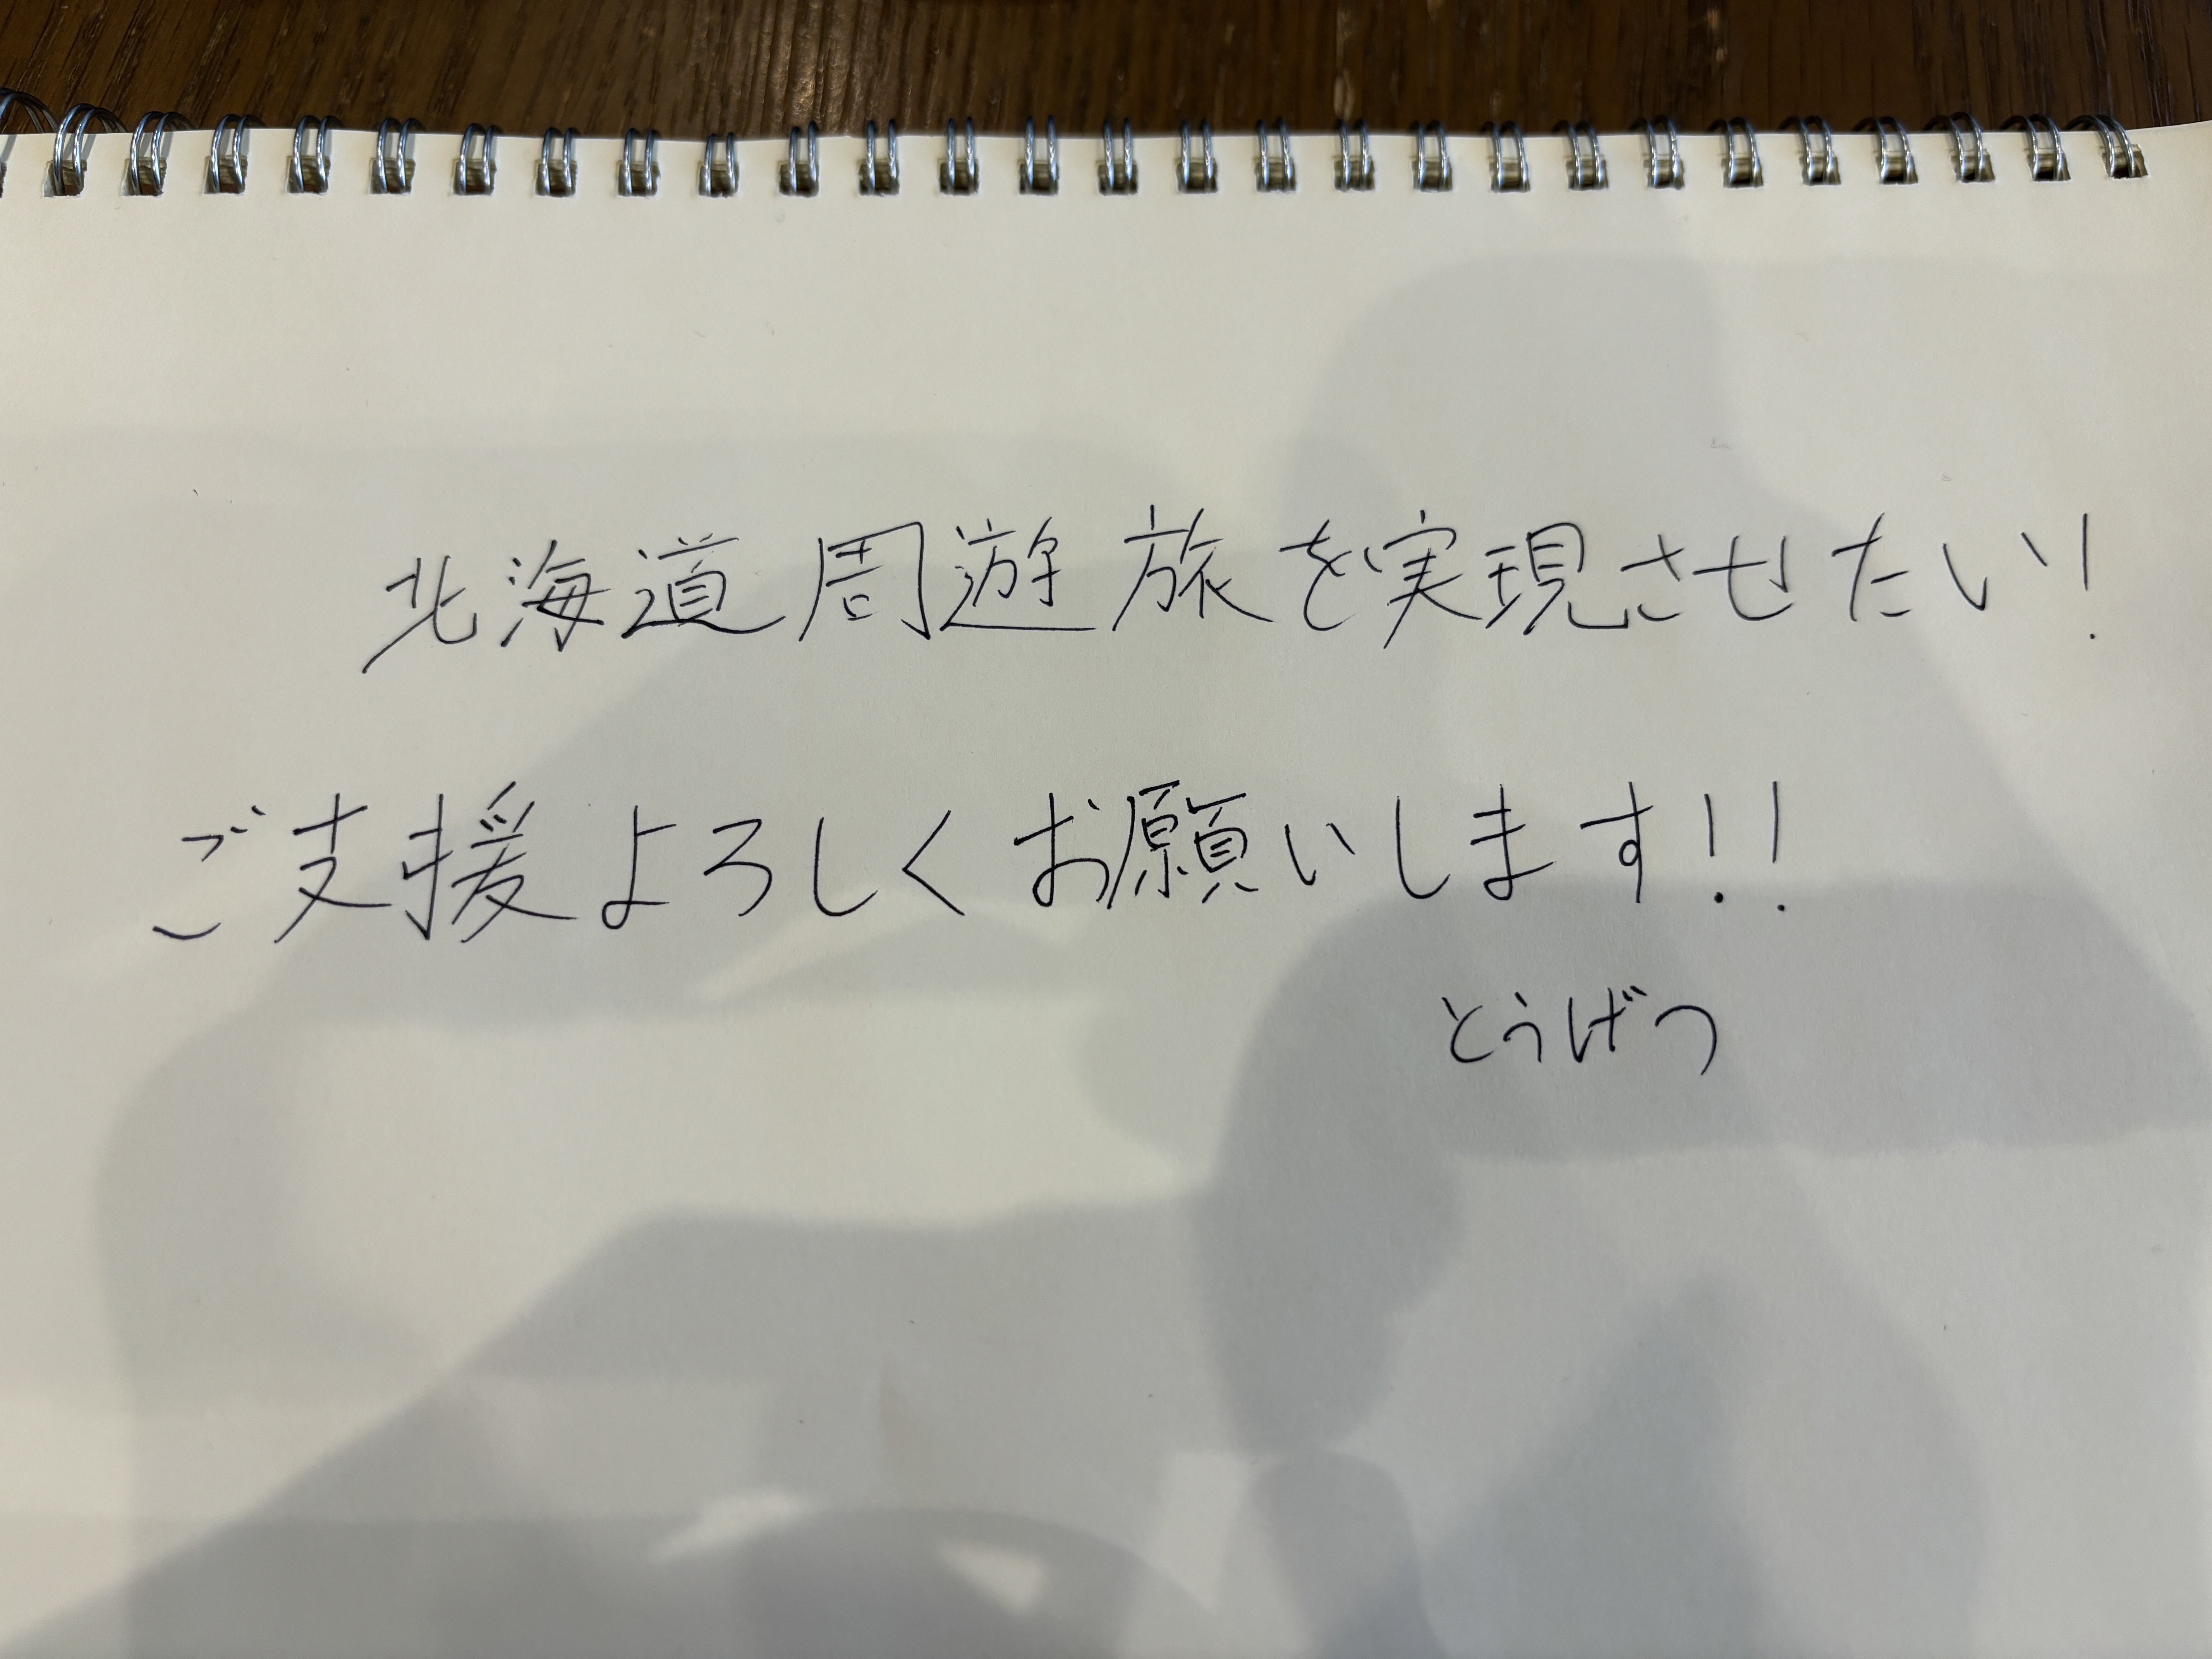 北海道周遊旅を実現させたい!
ご支援よろしくお願いします!!
とうげつ